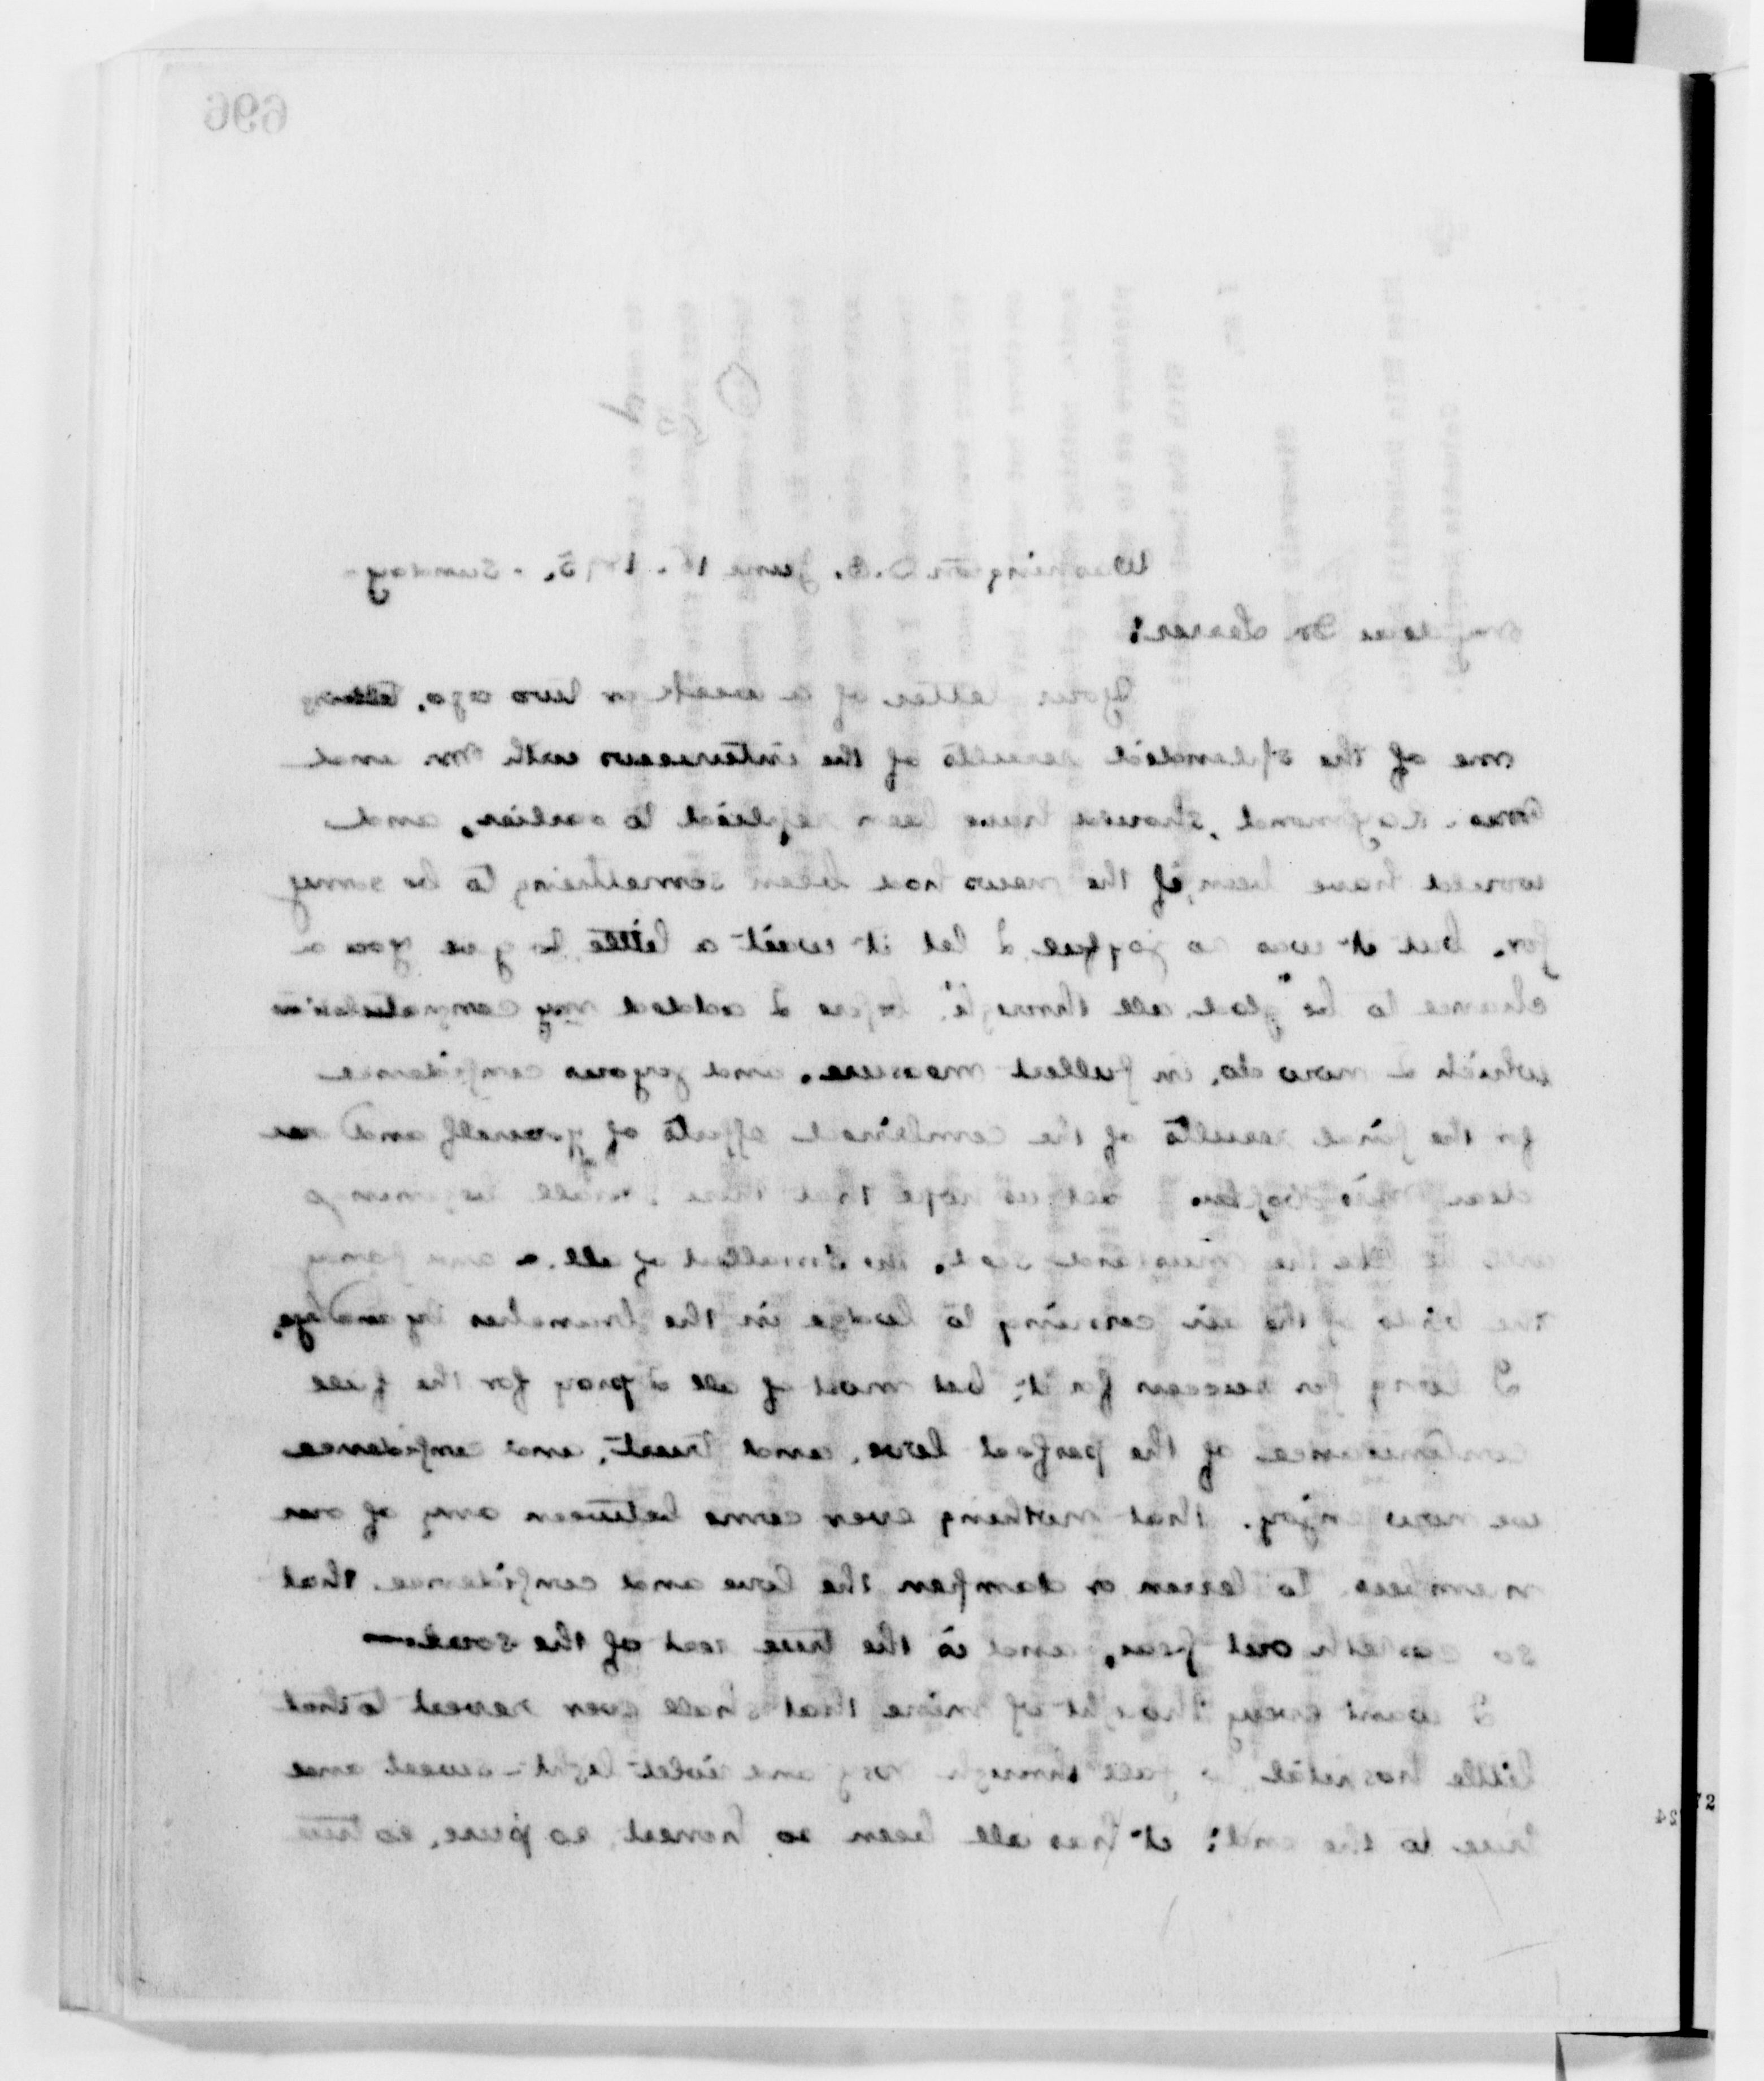 696
Washington D.C. June 16. 1895. - Sunday -
My dear Dr Lesser:
Your letter of a week or two ago, telling
me of the splendid results of the interviews with Mr. and
Mrs. Raymond, should have been replied to earlier, and
would have been, if the news had been something to be sorry
for. but it was so joyful I let it wait a little to give you a
chance to be "glad all through" before I added my congratulations
which I now do, in fullest measure. and joyous confidence
for the final results of the combined efforts of yourself and our
dear Let us hope that this small beginning
will be like the mustard seed, the smallest of all. - and fancy
the birds of the air coming to lodge in the branches by and bye.
I long for success for it; but most of all I pray for the full
continuance of the perfect love, and trust, and confidence
we now enjoy. that nothing ever come between any of our
members to lessen or dampen the love and confidence that
so casteth out fear, and is the true rest of the soul -
I want every thought of mine that shall ever revert to that
little hospital to fall through rosy and violet light - sweet and
true to the end; it has all been so honest, so pure, so true